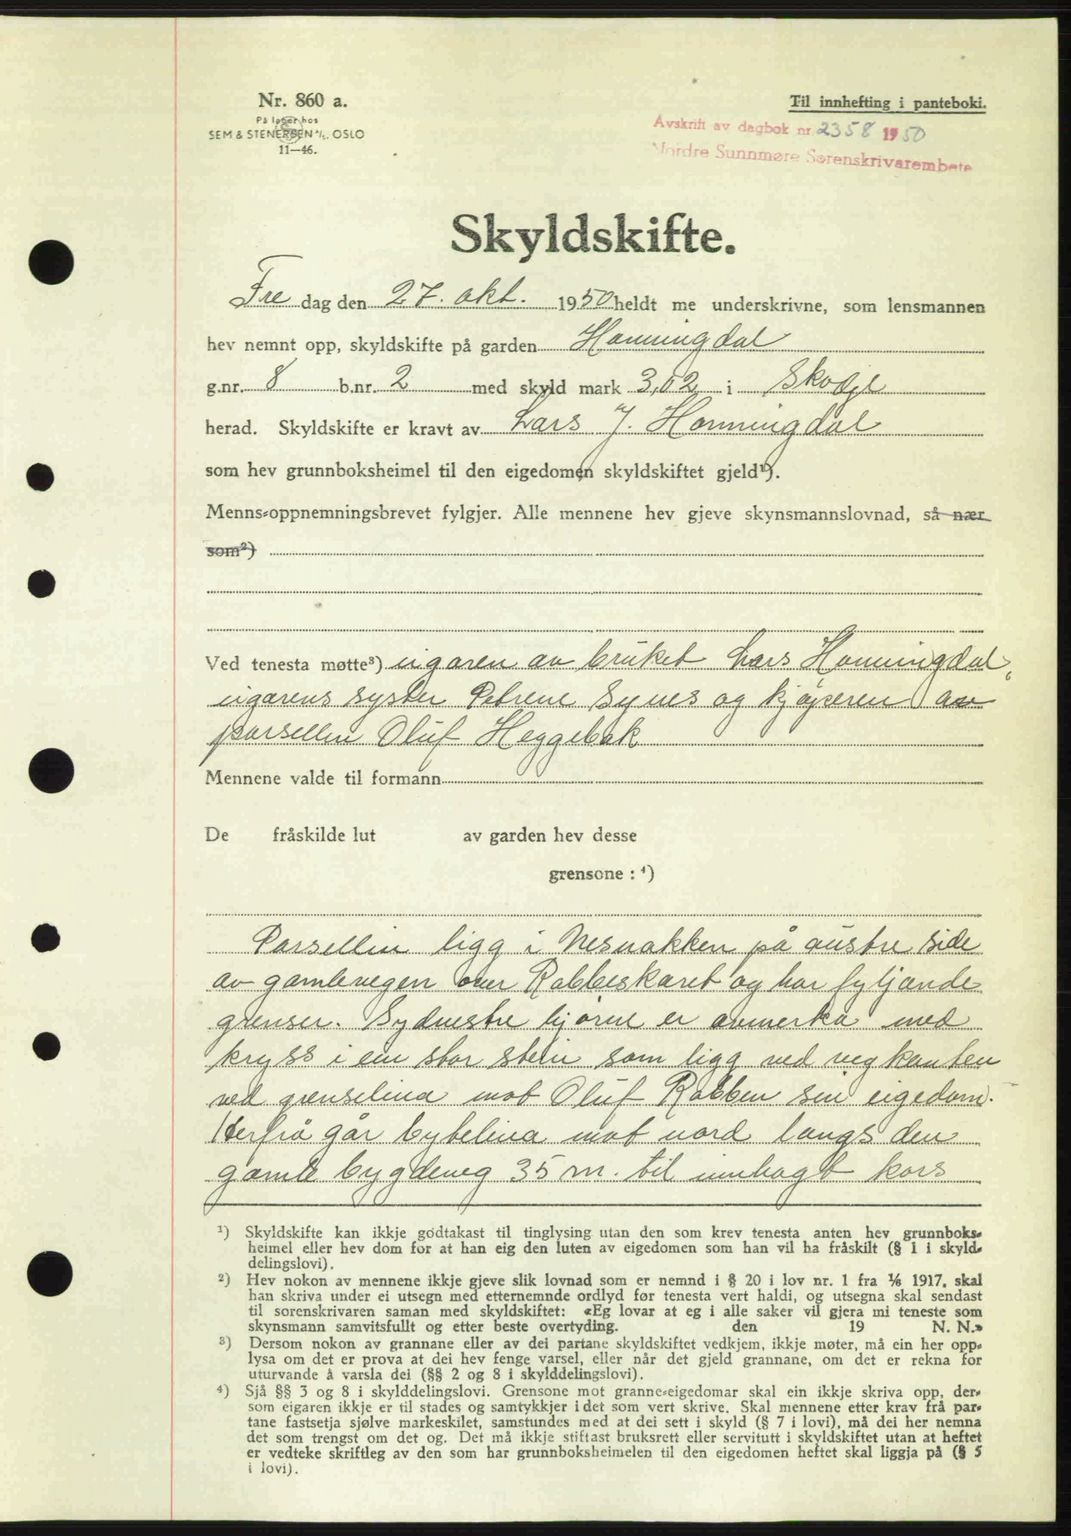 Nr. 860 a.
På lager hos
SEM & STENERSEN A/S. OSLO
11—46.
Til innhefting i panteboki.
Avskrift av dagbok nr 2358 1950
Nordre Sunnmøre Sorenskrivarembete
Skyldskifte.
Fre dag den 27. okt. 1950 heldt me underskrivne, som lensmannen
hev nemnt opp, skyldskifte på garden Honningdal
g.nr. 8 b.nr. 2 med skyld mark 3,02 i Skodje
herad. Skyldskifte er kravt av Lars J. Honningdal
som hev grunnboksheimel til den eigedomen skyldskiftet gjeld¹).
Menns-oppnemningsbrevet fylgjer. Alle mennene hev gjeve skynsmannslovnad, så nær
som²)
Ved tenesta møtte³) eigaren av bruket Lars Honningdal,
eigarens syster Petrene Synes og kjøperen av
parsellen Oluf Heggebak
Mennene valde til formann
De fråskilde lut av garden hev desse
grensone : ⁴)
Parsellen ligg i Nesnakken på austre side
av gamlevegen over Rabbeskaret og har fyljande
grenser. Sydvestre hjørne er avmerka med
kryss i ein stor stein som ligg ved vegkanten
ved grenselina mot Oluf Rabben sin eigedom.
Herfrå går bytelina mot nord langs den
gamle bygdeveg 35 m. til innhogt kors
¹) Skyldskifte kan ikkje godtakast til tinglysing utan den som krev tenesta anten hev grunnboks-
heimel eller hev dom for at han eig den luten av eigedomen som han vil ha fråskilt (§ 1 i skyld-
delingslovi).
²) Hev nokon av mennene ikkje gjeve slik lovnad som er nemnd i § 20 i lov nr. 1 fra ⅙ 1917, skal
han skriva under ei utsegn med etternemnde ordlyd før tenesta vert haldi, og utsegna skal sendast
til sorenskrivaren saman med skyldskiftet: «Eg lovar at eg i alle saker vil gjera mi teneste som
skynsmann samvitsfullt og etter beste overtyding. den 19 N. N.»
³) Dersom nokon av grannane eller av dei partane skyldskiftet vedkjem, ikkje møter, må ein her opp-
lysa om det er prova at dei hev fenge varsel, eller når det gjeld grannane, om det er rekna for
uturvande å varsla dei (§§ 2 og 8 i skylddelingslovi).
⁴) Sjå §§ 3 og 8 i skylddelingslovi. Grensone mot granne-eigedomar skal ein ikkje skriva opp, der-
som eigaren ikkje er til stades og samtykkjer i det som vert skrive. Skal mennene etter krav frå par-
tane fastsetja sjølve markeskilet, samstundes med at dei sett i skyld (§ 7 i lovi), må dei her nemna
det som trengst om det og. Det må ikkje stiftast bruksrett eller servitutt i skyldskiftet utan at heftet
er vedteke skriftleg av den som har grunnboksheimelen til den eigedomen heftet skal liggja på (§ 5
i lovi).